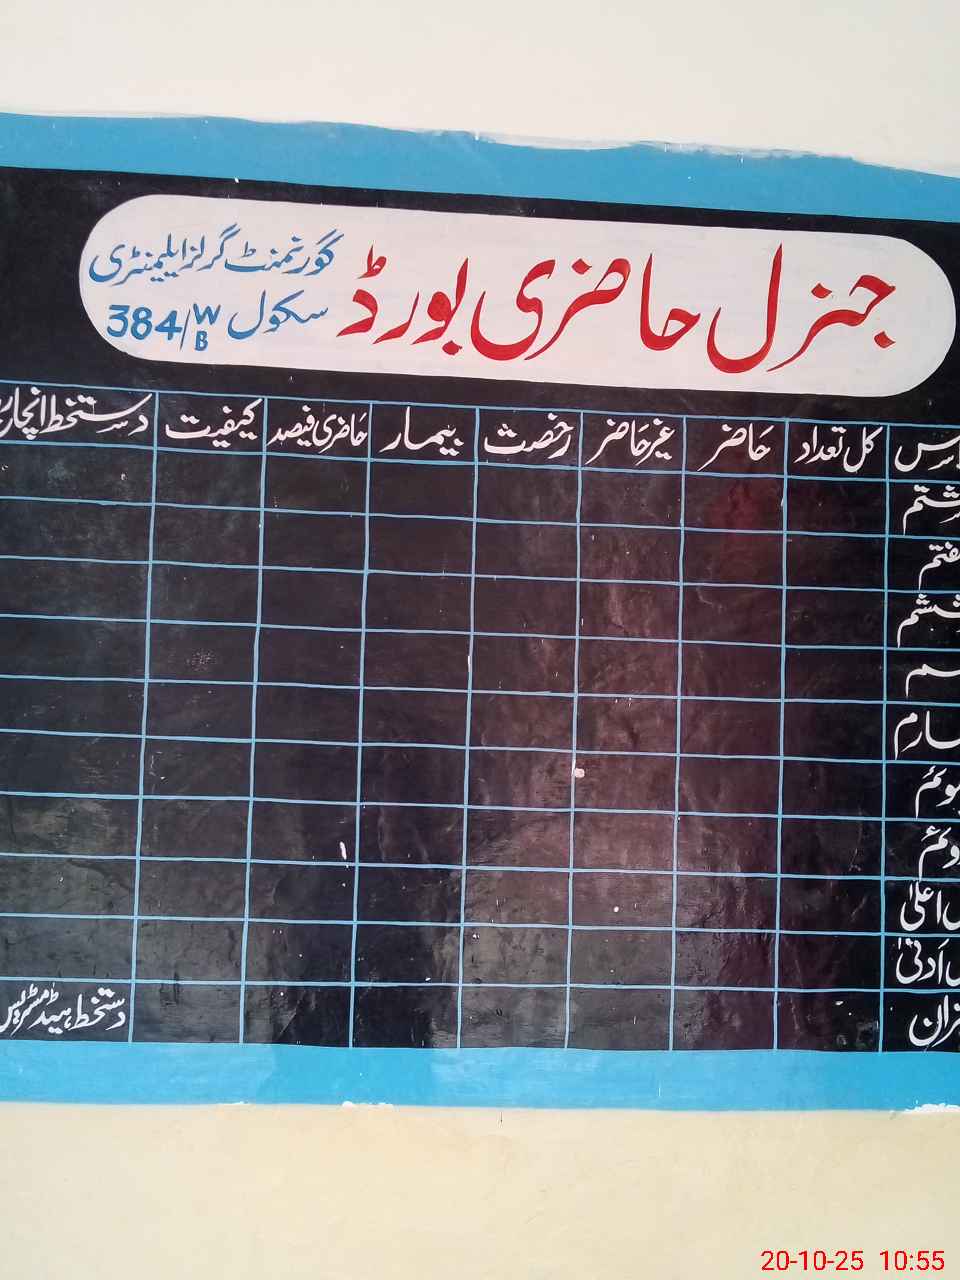 جنرل حاضری بورڈ
گورنمنٹ گرلز ایلیمنٹری
سکول 384/WB
کل تعداد حاضر غیر حاضر رخصت بیمار حاضری فیصد کیفیت دستخط انچارج
شتم
فتم
ششم
ارم
وئم
وئم
اعلیٰ
ادنیٰ
زان
دستخط ہیڈ مسٹریس
20-10-25 10:55